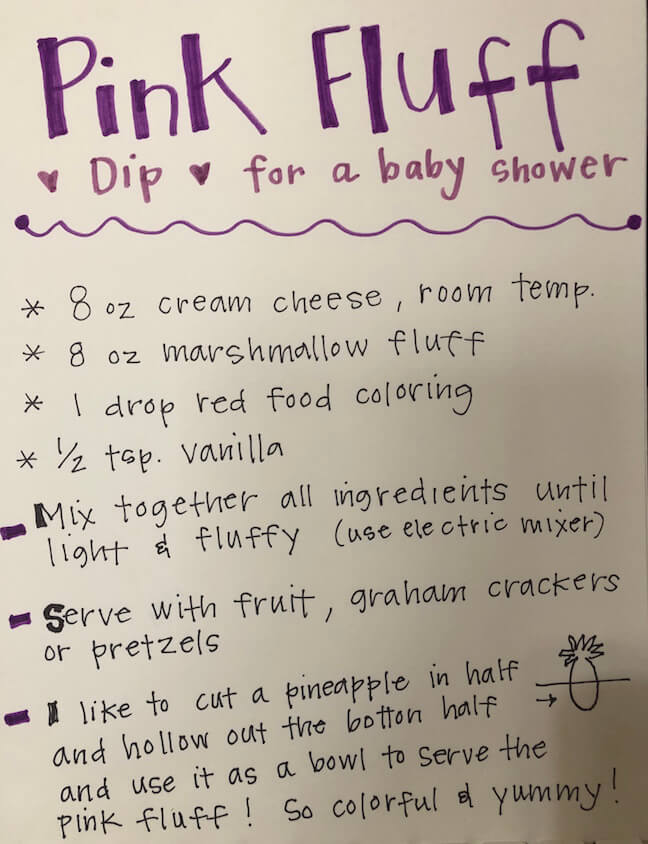 Pink Fluff
♥ Dip ♥ for a baby shower
* 8 oz cream cheese, room temp.
* 8 oz marshmallow fluff
* 1 drop red food coloring
* 1/2 tsp. vanilla
- Mix together all ingredients until
light & fluffy (use electric mixer)
- Serve with fruit, graham crackers
or pretzels
- I like to cut a pineapple in half
and hollow out the botton half
and use it as a bowl to serve the
pink fluff! So colorful & yummy!